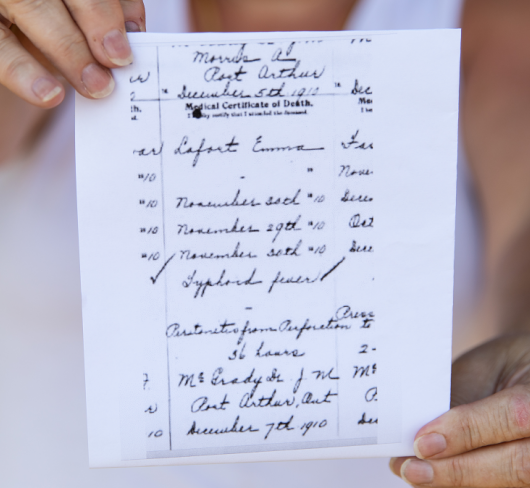 Morris A
Port Arthur
2 " December 5th 1910 " Dec
Medical Certificate of Death.
I hereby certify that I attended the deceased.
Lafort Emma
"10 - " Nove
"10 November 30th "10 Dece
"10 November 29th "10 Oct
"10 November 30th "10 Dece
✓ Typhoid fever
Peritonitis from Perforation to
36 hours 2-
7. McGrady Dr. J M Mc
Port Arthur, Ont P
10 December 7th 1910 Dec